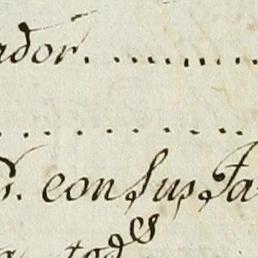 ador. ............
............
s. con sus Ta
tod.es